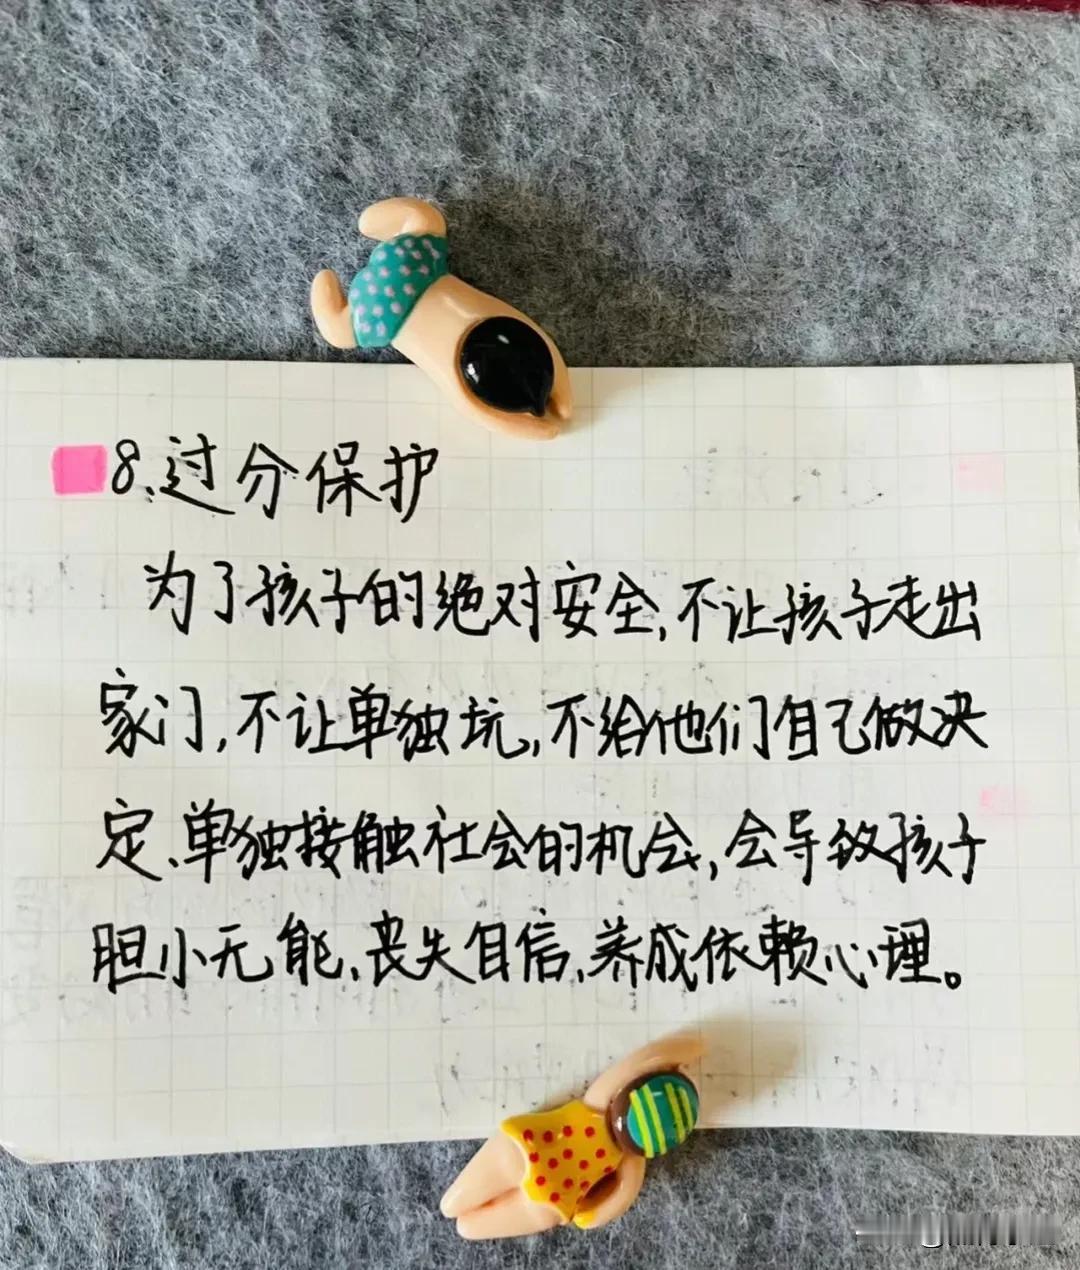 8、过分保护
为了孩子的绝对安全,不让孩子走出
家门,不让单独玩,不给他们自己做决
定、单独接触社会的机会,会导致孩子
胆小无能、丧失自信、养成依赖心理。